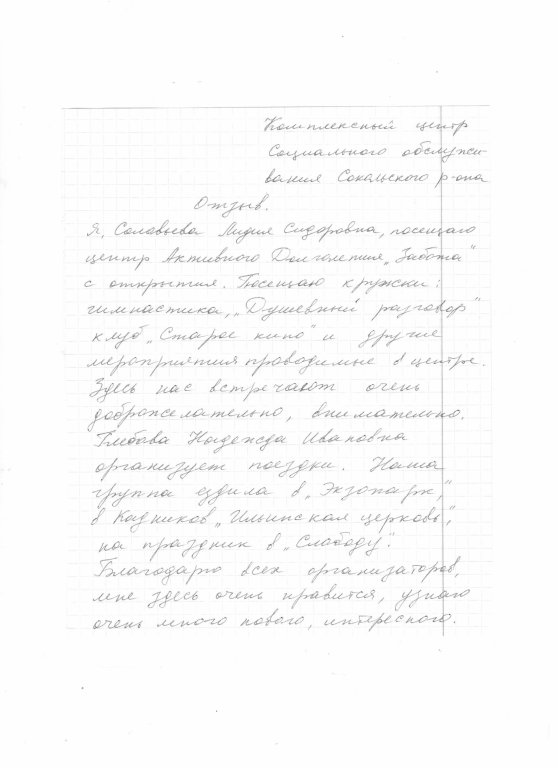 Комплексный центр
Социального обслужи-
вания Сокольского р-она
Отзыв.
Я, Соловьева Лидия Сидоровна, посещаю
центр Активного Долголетия „Забота"
с открытия. Посещаю кружки:
гимнастика, „Душевный разговор"
клуб „Старое кино" и другие
мероприятия проводимые в центре.
Здесь нас встречают очень
доброжелательно, внимательно.
Глебова Надежда Ивановна
организует поездки. Наша
группа ездила в „Экзопарк,"
в Кадников „Ильинская церковь",
на праздник в „Слободу".
Благодарю всех организаторов,
мне здесь очень нравится, узнаю
очень много нового, интересного.